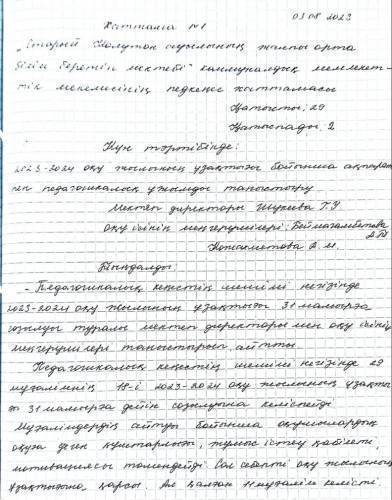 03 08 2023
Хаттама №1
„Старый Колутон ауылының жалпы орта
білім беретін мектебі" коммуналдық мемлекет-
тік мекемесінің педкеңес хаттамасы
Қатысты: 29
Қатыспады: 2
Күн тәртібінде:
2023-2024 оқу жылының ұзақтығы бойынша ақпарат
пен педагогикалық ұжымды таныстыру
Мектеп директоры Шукеева Г.У
оқу ісінің меңгерушілері: Баймагамбетова
Кожахметова А.М.
Тыңдалды:
- Педагогикалық кеңестің шешімі негізінде
2023-2024 оқу жылының ұзақтығы 31 мамырға
созылуы туралы мектеп директоры мен оқу ісінің
меңгерушілері таныстырып айтты.
Педагогикалық кеңестің шешімі негізінде 29
мұғалімнің 18-і 2023-2024 оқу жылының ұзақты
ғы 31 мамырға дейін созылуына келіспейді
Мұғалімдердің айтуы бойынша оқушылардың
оқуға деген құштарлығы, жұмыс істеу қабілеті,
мотивациясы төмендейді. Сол себепті оқу жылының
ұзақтығына қарсы. Ал қалған 11 мұғалім келісті.